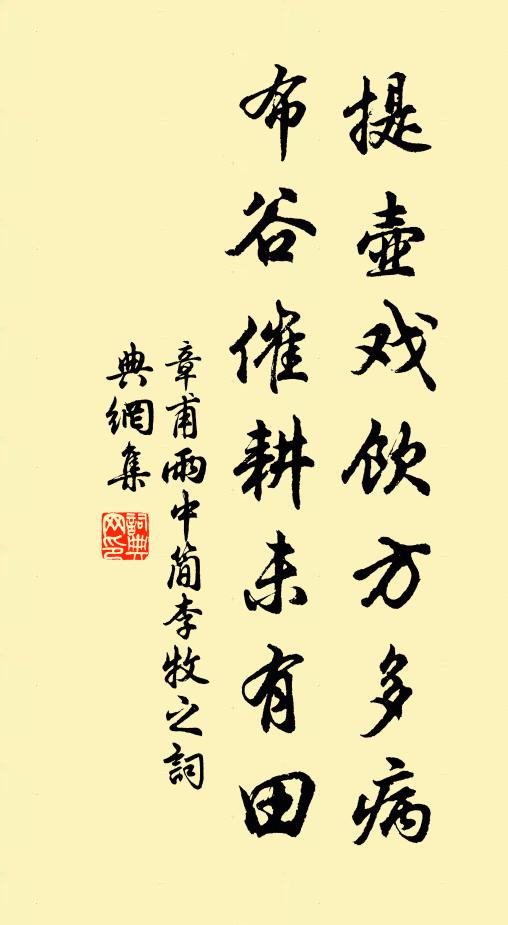 提壺戏饮方多病
布谷催耕未有田
章甫雨中简李牧之詞
典網集
詞典
网印